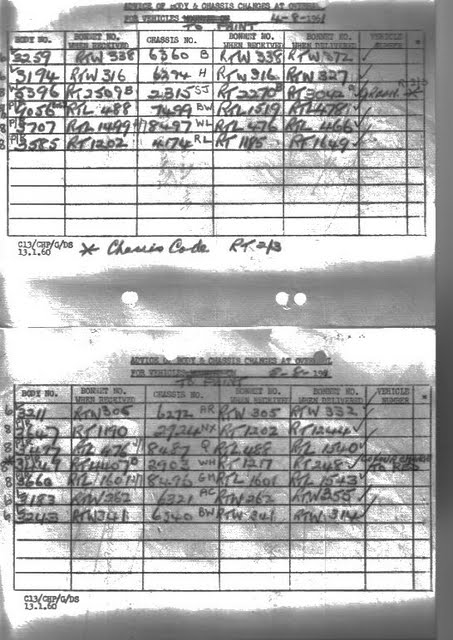 ADVICE OF BODY & CHASSIS CHANGES AT OVERHAUL
FOR VEHICLES 4-8-1961
TO PAINT
BODY NO. BONNET NO. WHEN RECEIVED CHASSIS NO. BONNET NO. WHEN RECEIVED BONNET NO. WHEN DELIVERED VEHICLE NUMBER *
6 3259 RTW 338 6360 B RTW 338 RTW 372 ✓
6 3194 RTW 316 H RTW 316 RTW 327 ✓
8 RT 2509 B 2315 SJ RT 2270 RT 3042
8 RTL 488 7499 BW RTL 1519 RTL 478 ✓
8 3707 RTL 1499 8497 WL RTL 476 RTL 466 ✓
8 3585 RT 1202 4174 RL RT 1185 RT 1649 ✓
C13/CHP/G/DS
13.1.60
* Chassis Code RT 2/3
ADVICE OF BODY & CHASSIS CHANGES AT OVERHAUL
FOR VEHICLES 8-8-196
TO PAINT
BODY NO. BONNET NO. WHEN RECEIVED CHASSIS NO. BONNET NO. WHEN RECEIVED BONNET NO. WHEN DELIVERED VEHICLE NUMBER *
6 3211 RTW 305 6272 AR RTW 305 RTW 332 ✓
RT 1190 2924 NX RT 1202 RT 1244 ✓
RTL 476 8487 Q RTL 488 RTL 1540 ✓
8 2903 WH RT 1217 RT 248 ✓
8 3660 RTL 1601 8496 GH RTL 1601 RTL 1543 ✓
6 3183 RTW 262 6221 AC RTW 262 RTW 355 ✓
6 3243 RTW 341 6340 BW RTW 341 RTW 314 ✓
C13/CHP/G/DS
13.1.60